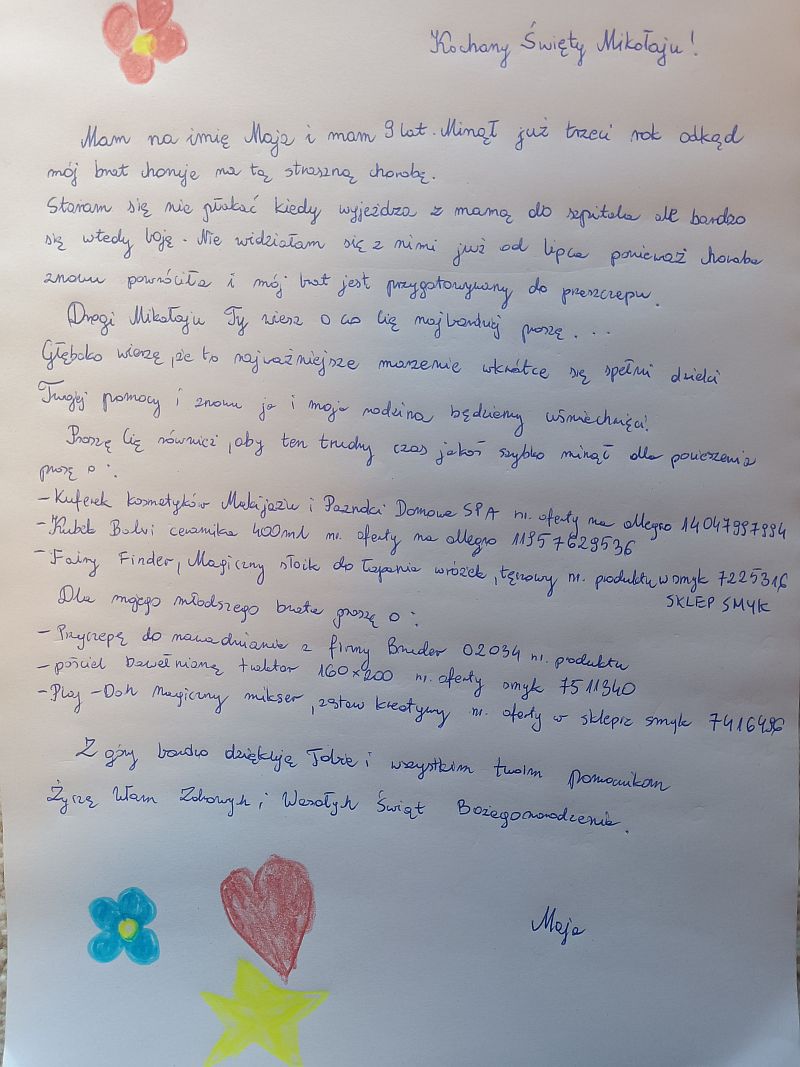 Kochany Święty Mikołaju!
Mam na imię Maja i mam 9 lat. Minął już trzeci rok odkąd
mój brat choruje na tą straszną chorobę.
Staram się nie płakać kiedy wyjeżdża z mamą do szpitala ale bardzo
się wtedy boję. Nie widziałam się z nimi już od lipca ponieważ choroba
znowu powróciła i mój brat jest przygotowywany do przeszczepu.
Drogi Mikołaju Ty wiesz o co Cię najbardziej proszę...
Głęboko wierzę, że to najważniejsze marzenie wkrótce się spełni dzięki
Twojej pomocy i znowu ja i moja rodzina będziemy uśmiechnięci!
Proszę Cię również, aby ten trudny czas jakoś szybko minął dla pocieszenia
proszę o:
- Kuferek kosmetyków Makijażu i Paznokci Domowe SPA nr. oferty na allegro 14047997994
- Kubek Balvi ceramika 400ml nr. oferty na allegro 11957629536
- Fairy Finder, Magiczny słoik do łapania wróżek, tęczowy nr. produktu w smyk 7225316
SKLEP SMYK
Dla mojego młodszego brata proszę o:
- Przyczepę do nawadniania z firmy Bruder 02034 nr. produktu
- pościel bawełnianą traktor 160x200 nr. oferty smyk 7511340
- Play-Doh Magiczny mikser, zestaw kreatywny nr. oferty w sklepie smyk 7416496
Z góry bardzo dziękuję Tobie i wszystkim twoim pomocnikom
Życzę Wam Zdrowych i Wesołych Świąt Bożegonarodzenia.
Maja